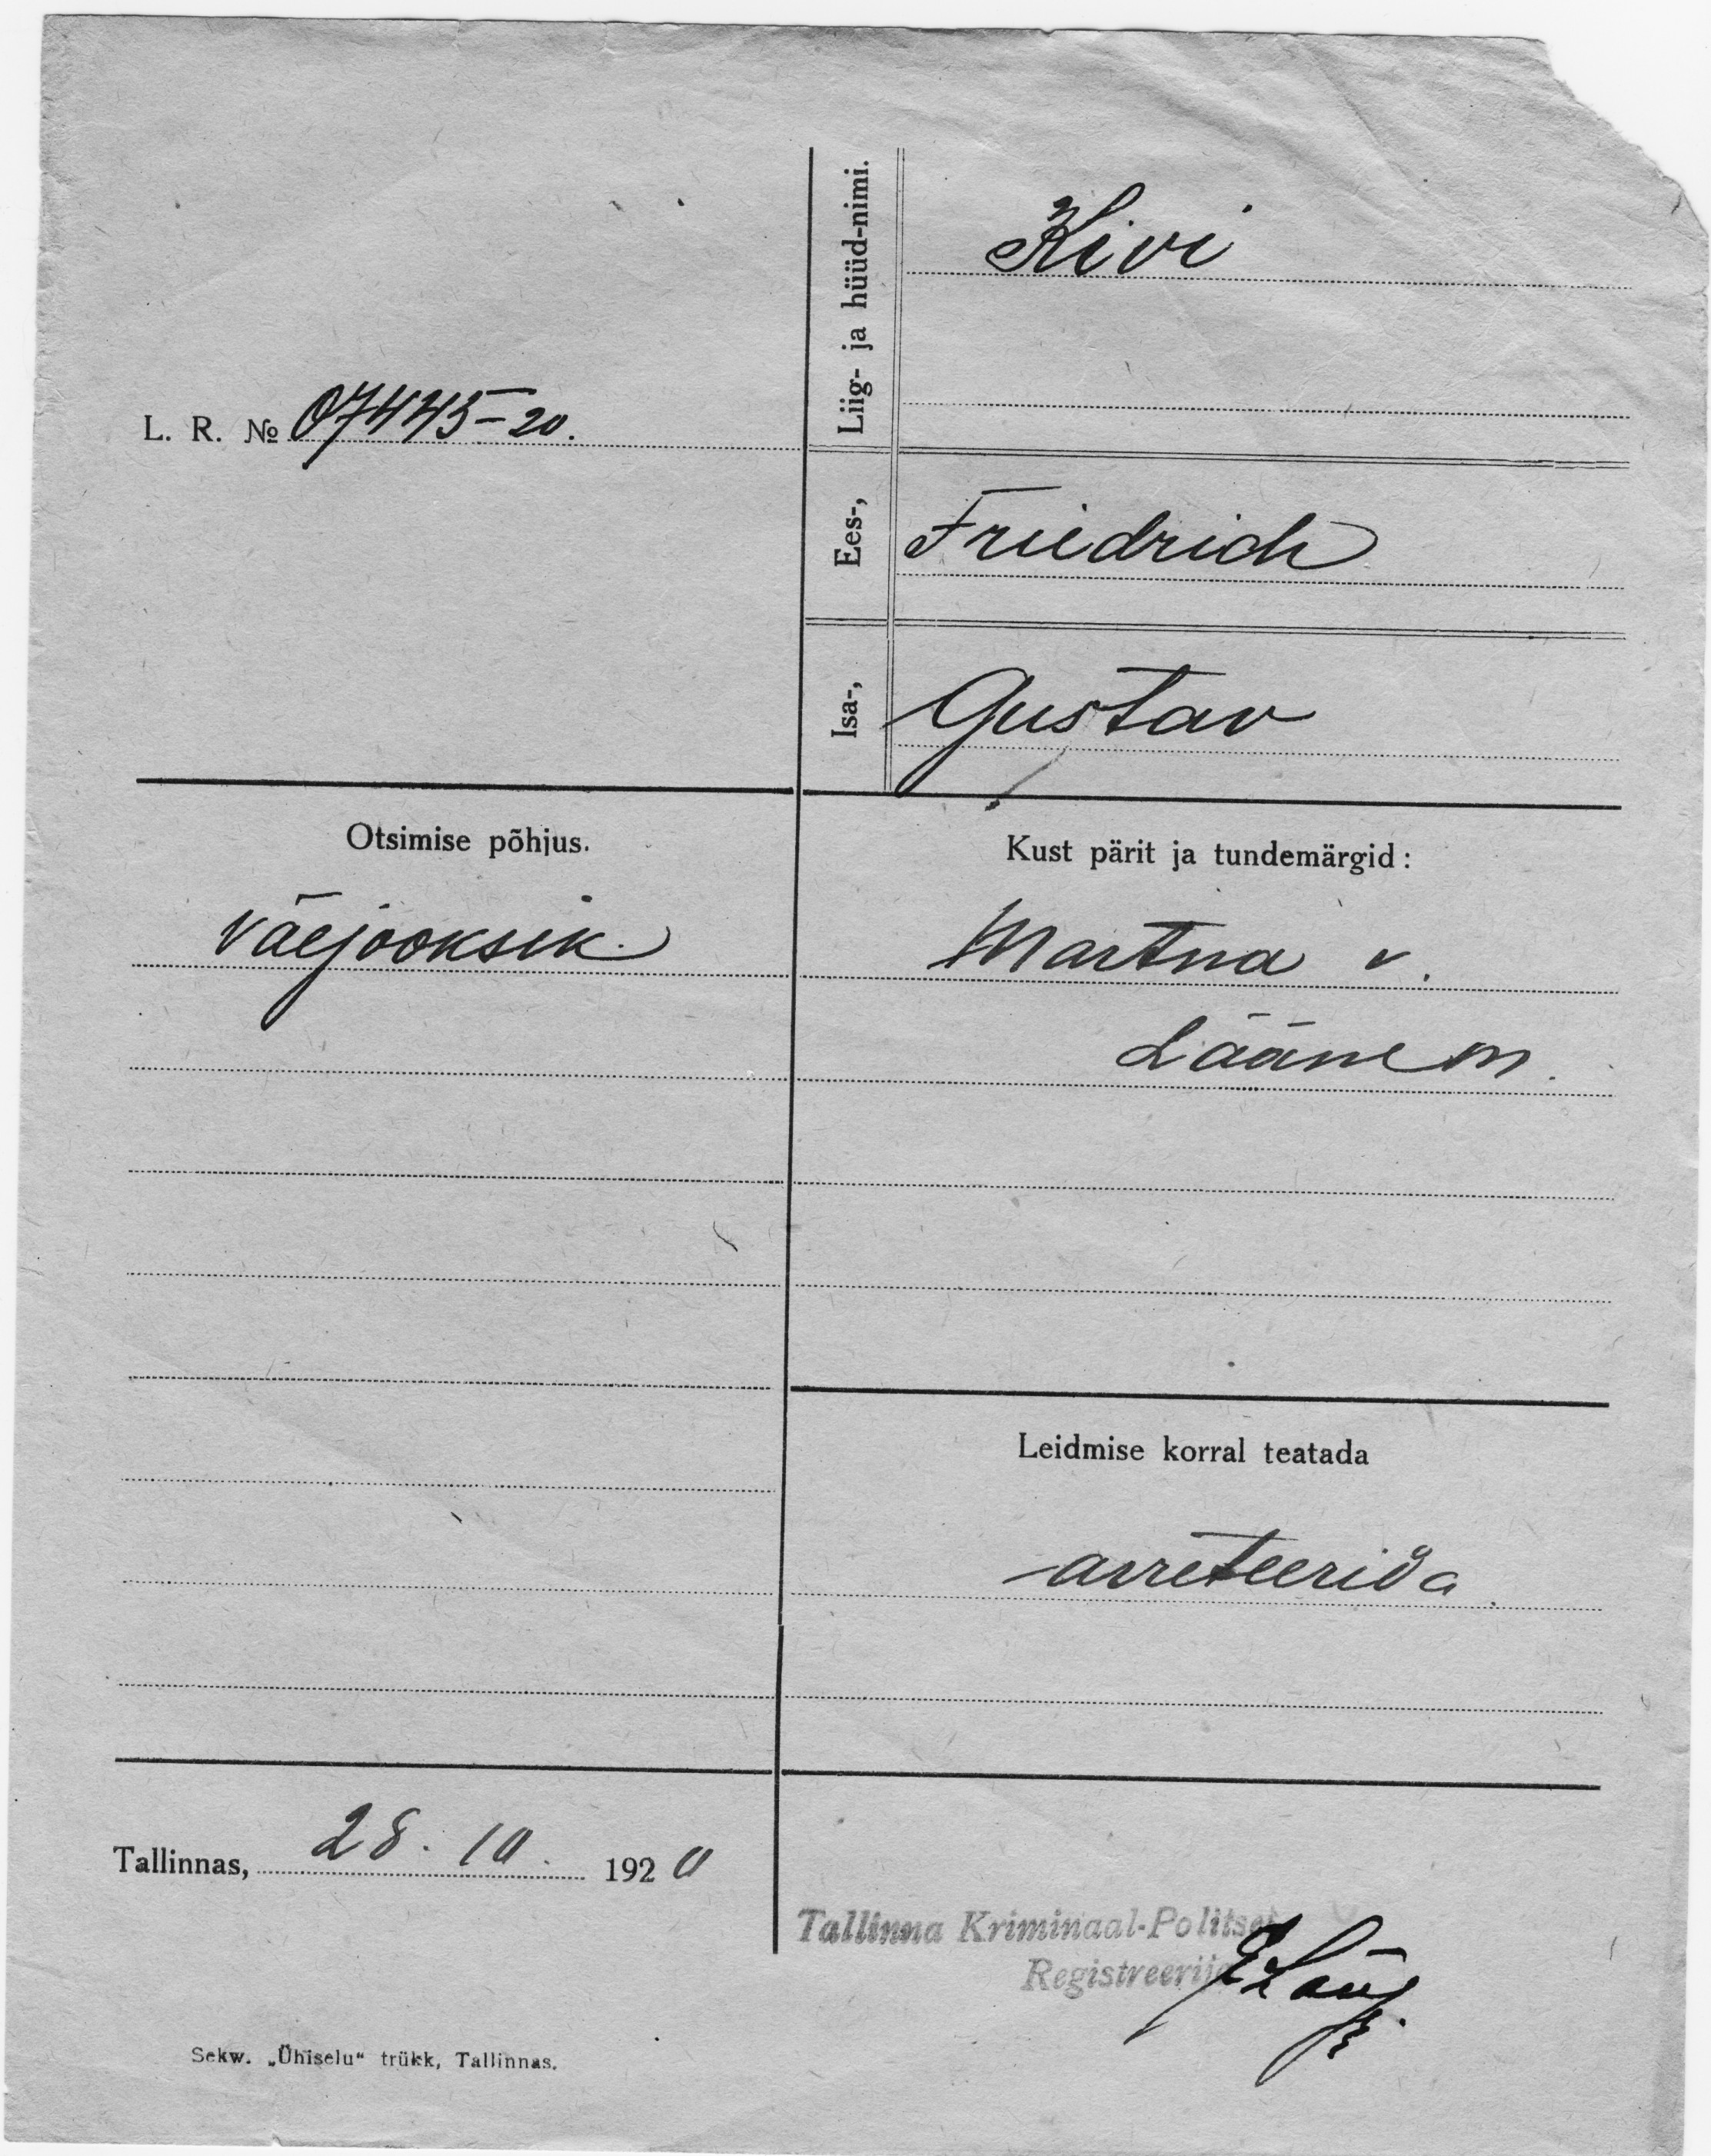 L. R. № 07445-20.
Liig- ja hüüd-nimi.
Kivi
Ees-,
Friedrich
Isa-,
Gustav
Otsimise põhjus.
Väejooksik.
Kust pärit ja tundemärgid:
Martna v.
Läänem.
Leidmise korral teatada
arreteerida.
Tallinnas, 28. 10. 1920
Tallinna Kriminaal-Politsei
Registreerija
Sekw. „Ühiselu“ trükk, Tallinnas.